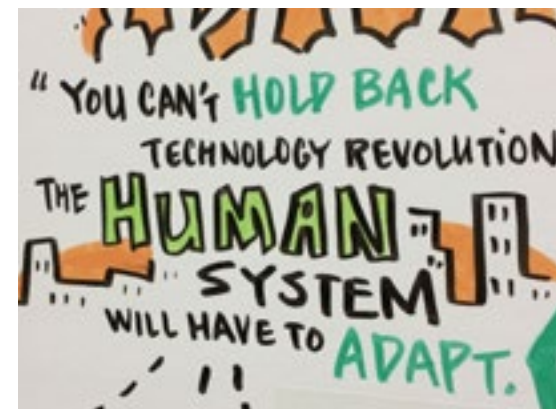 "YOU CAN'T HOLD BACK
TECHNOLOGY REVOLUTION
THE HUMAN
SYSTEM"
WILL HAVE TO ADAPT.